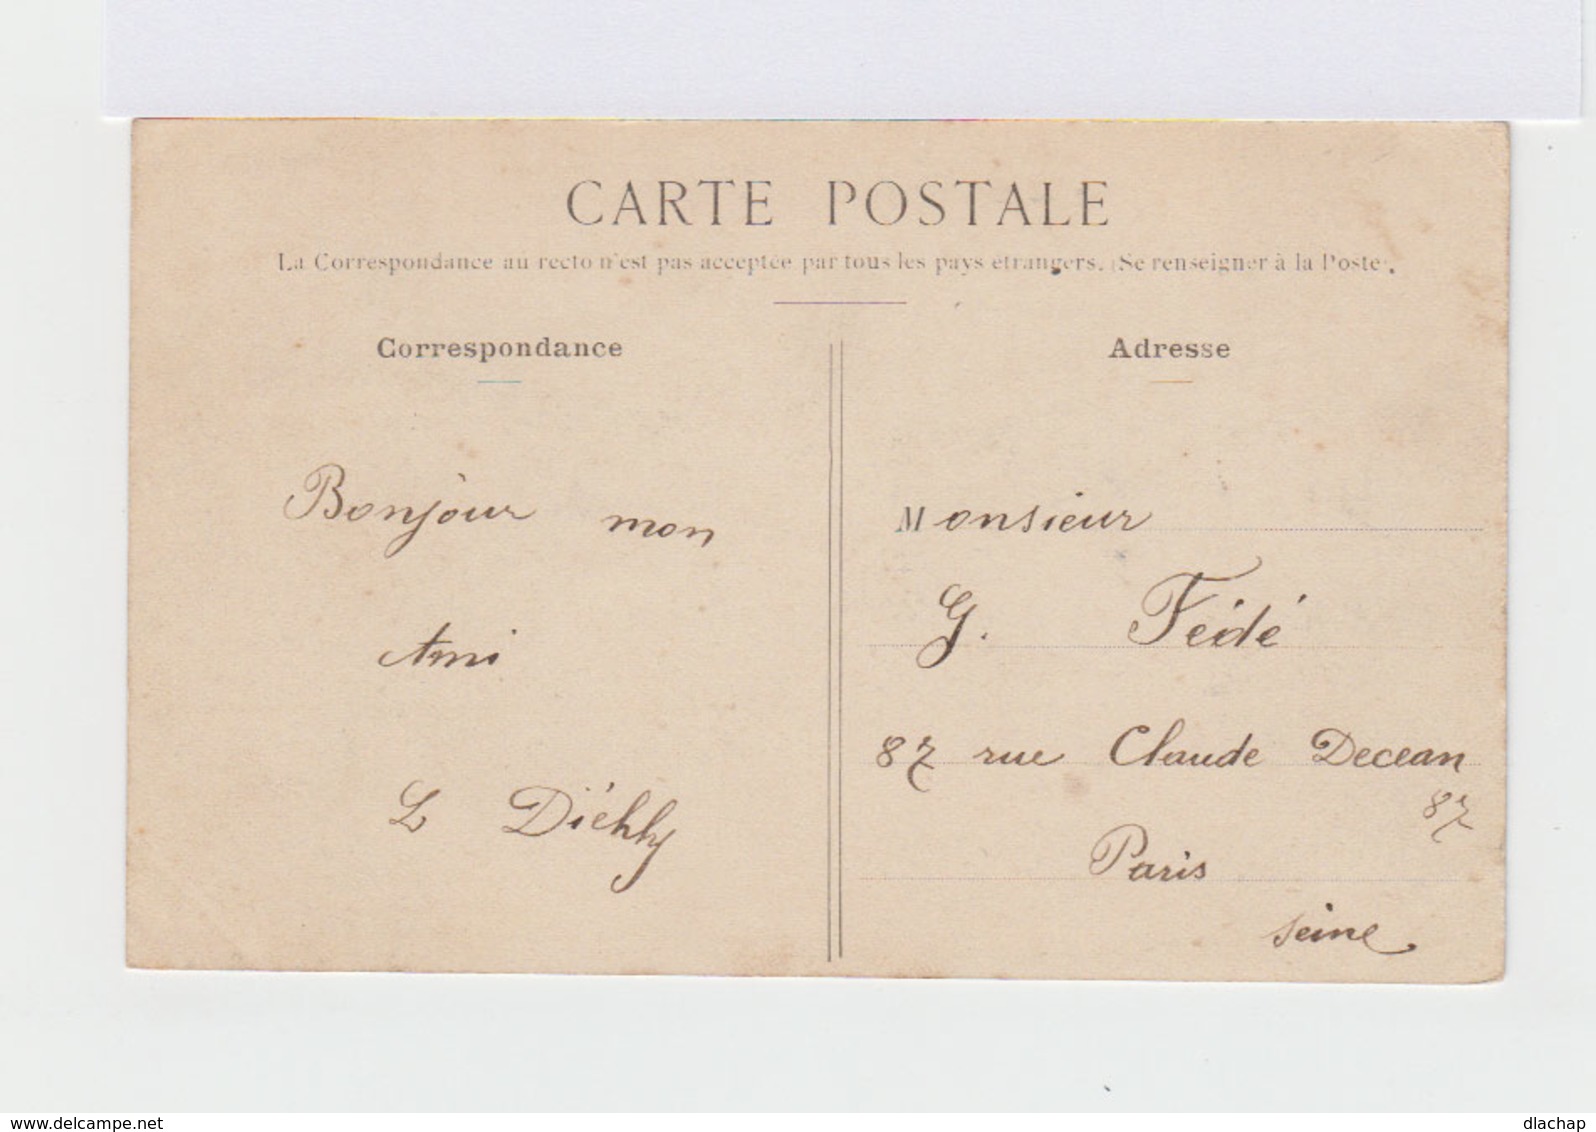 CARTE POSTALE
La Correspondance au recto n'est pas acceptée par tous les pays étrangers. (Se renseigner à la Poste).
Correspondance
Bonjour mon
Ami
L Diehly
Adresse
Monsieur
G. Fédé
87 rue Claude Decean
87
Paris
Seine
www.delcampe.net
dlachap